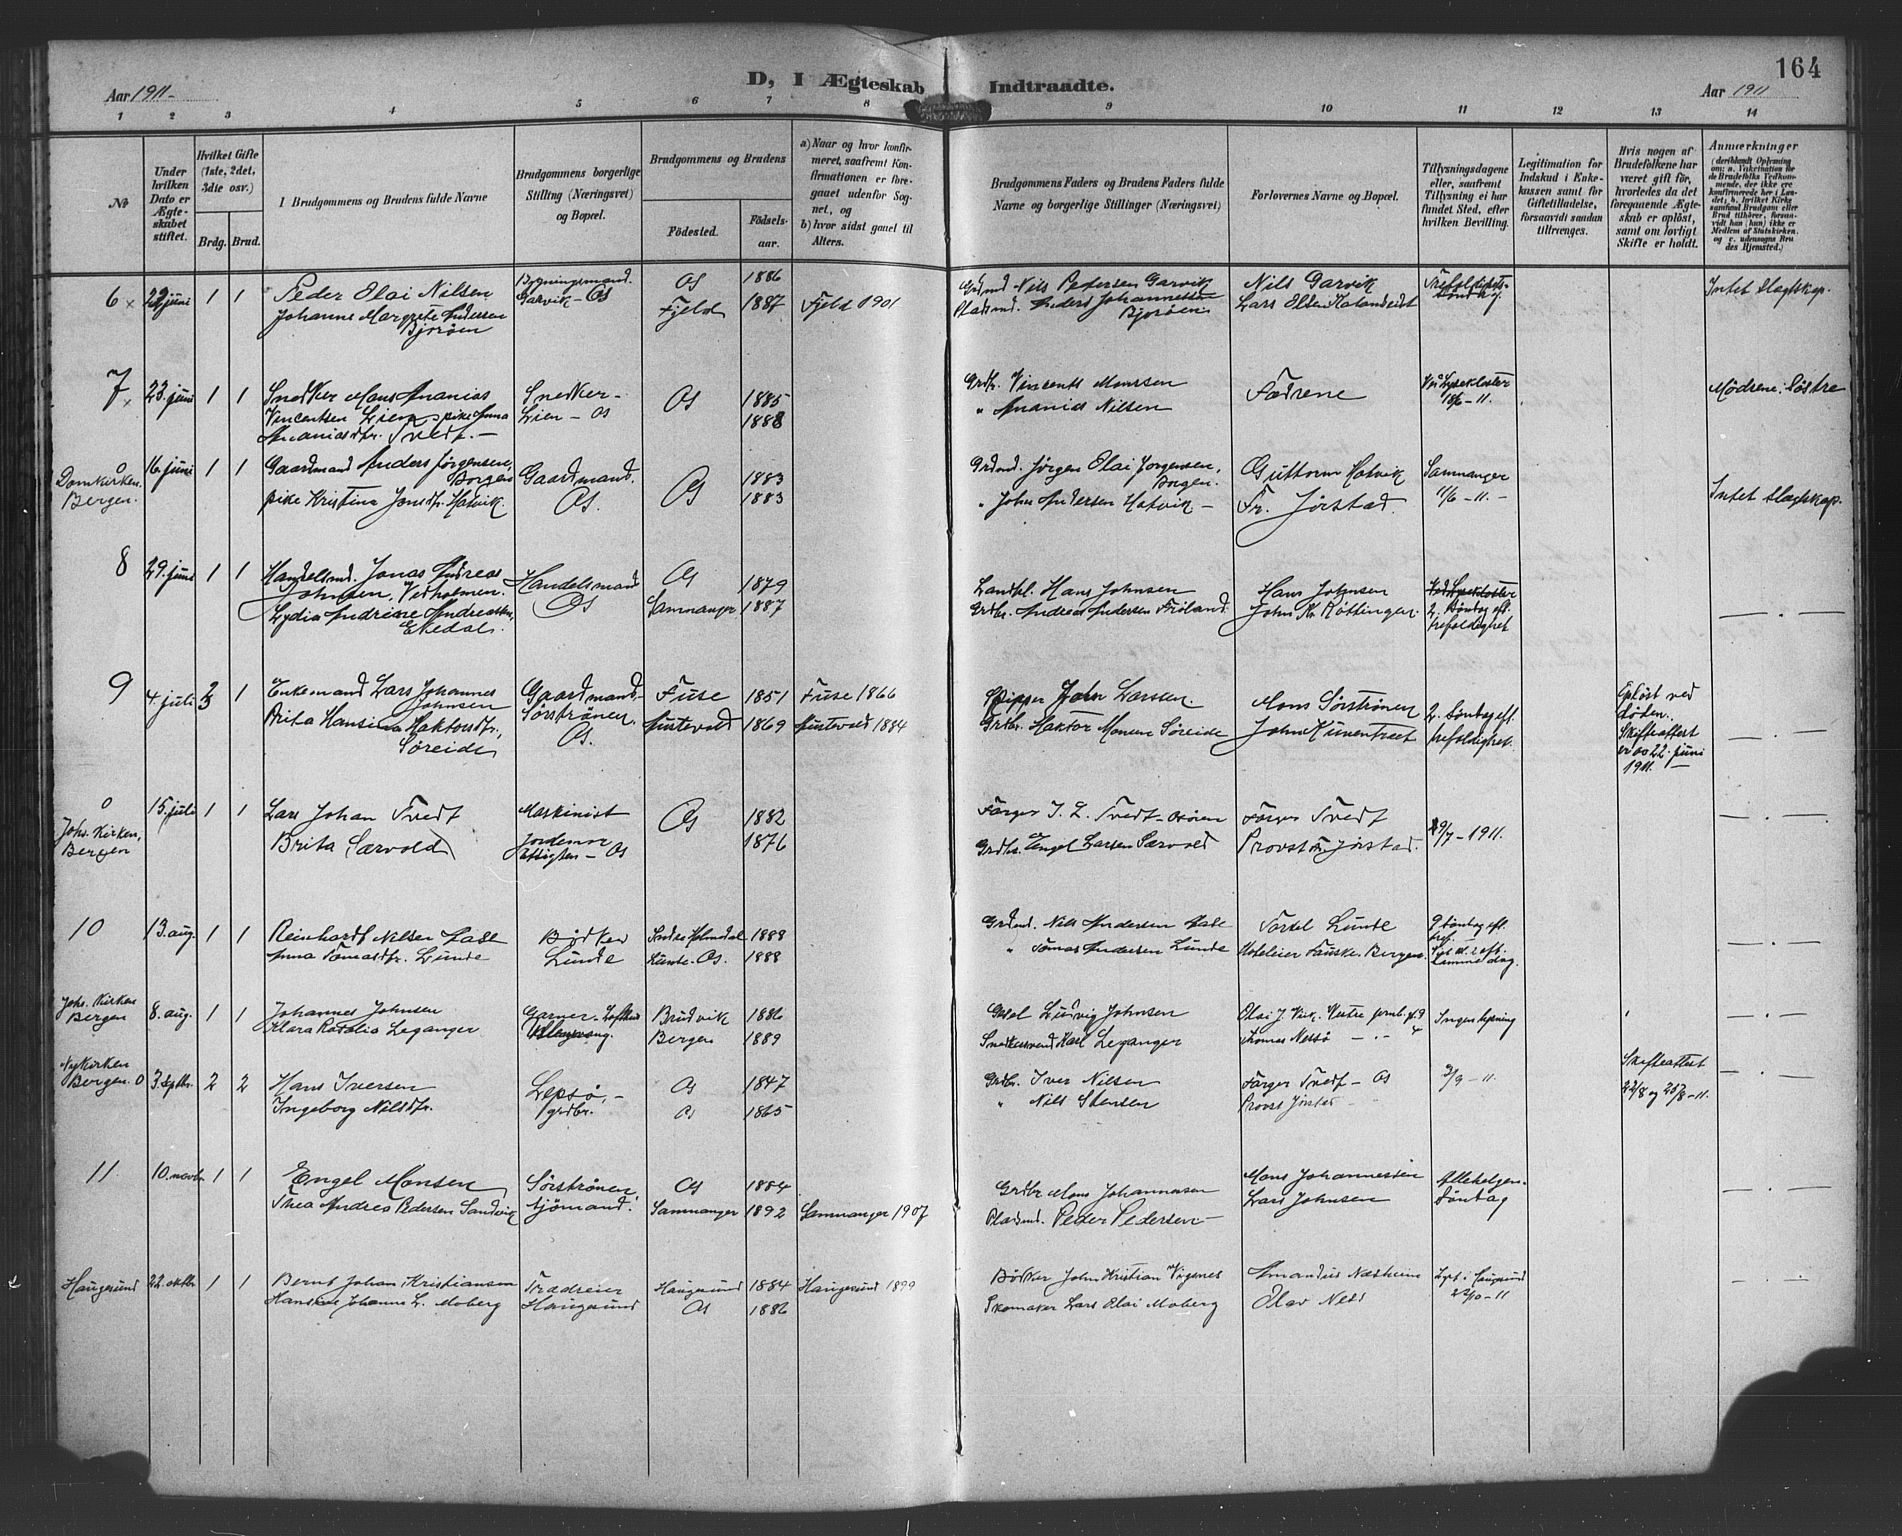 164
D, I Ægteskab Indtraadte.
Aar 1911- Aar 1911
1 2 3 4 5 6 7 8 9 10 11 12 13 14
№
Under hvilken Dato er Ægteskabet stiftet.
Hvilket Gifte (1ste, 2det, 3die osv.)
Brdg. Brud.
I Brudgommens og Brudens fulde Navne
Brudgommens borgerlige Stilling (Næringsvei) og Bopæl.
Brudgommens og Brudens
Fødested. Fødselsaar.
a) Naar og hvor konfirmeret, saafremt Konfirmationen er foregaaet udenfor Sognet, og
b) hvor sidst gaaet til Alters.
Brudgommens Faders og Brudens Faders fulde Navne og borgerlige Stillinger (Næringsvei)
Forlovernes Navne og Bopæl.
Tillysningsdagene eller, saafremt Tillysning ei har fundet Sted, efter hvilken Bevilling.
Legitimation for Indskud i Enkekassen samt for Giftetilladelse, forsaavidt saadan tiltrænges.
Hvis nogen af Brudefolkene har været gift før, hvorledes da det foregaaende Ægteskab er opløst, samt om lovligt Skifte er holdt.
Anmærkninger
6 x 22 juni 1 1 Peder Olai Nilsen Bygningsmand. Os 1886 Grdmd Nils Pedersen Garvik Nils Garvik Intet Slagskap.
Johanne Margrete Andersen Garvik - Os Fjeld 1887 Fjeld 1901 Pladsmd. Anders Johannessen Lars
Bjorøen Bjorøen
7 x 23. juni 1 1 Snedker Mons Ananias Snedker - Os 1885 Grdbr. Vincents Monssen Fædrene Ved Lysekloster Mødrene: Søstre
Vincentsen Lien, pike Anna Lien - Os 1888 " Ananias Nilsen 18/6 - 11.
Ananiasdtr. Tvedt. -
o Domkirken. Bergen. 16. juni 1 1 Gaardmand Anders Jørgensen, Gaardmand. Os 1883 Grdmd. Jørgen Olai Jørgensen, Guttorm Hatvik Samnanger Intet Slagskap.
Borgen Borgen.
pike Kristina Jonsdtr. Hatvik. Os. 1883 " John Andersen Hatvik - Fr. Jørstad. 11/6 - 11. -
8 29. juni 1 1 Handelsmd. Jonas Andreas Handelsmand Os 1879 Landhl. Hans Johnsen Hans Johnsen Ved Lysekloster
Johnsen, Vedholmen. Os Samnanger 1887 Grdbr. Andreas Andersen Frøland. John Røttingen. 2. Søndag eft.
Lydia Andrine trefoldighet
Ekedal. — . —
9 4. juli 3 1 Enkemand Lars Johannes Gaardmand. Fuse 1851 Fuse 1866 John Larssen. Mons Sørstrønen 2. Søndag eft. Opløst ved
Johnsen Sørstrønen døden.
Brita Hansine Haktorsdtr, Os. Austevold 1869 Austevold 1884 Grdbr. Haktor Monsen Søreide John trefoldighet. Skifteattest
Søreide er av 22. juni
1911. — . —
o Johs. Kirken, Bergen 15. juli 1 1 Lars Johan Tvedt Maskinist Os 1882 Farger J. L. Tvedt - Osøren Farger Tvedt 9/7 - 1911. — . —
Brita Særvold Jordemor 1876 Grdbr. Engel Larsen Særvold Provst Fr. Jørstad.
- Os
10 13. aug. 1 1 Reinhardt Nilsen Aase Bødker 1888 Grdmd. Nils Andersen Aase Torkel Lunde Søndag eft. — . —
Anna Tomasdtr. Lunde Lunde Lunde - Os. 1888 " Tomas Andersen Lunde Hoteleier Fauske. Bergen. samme dag.
Johs. Kirken Bergen 8. aug. 1 1 Johannes Johnsen Garver. Brudvik 1886 Ludvig Johnsen Olai J. Ingen lysning
Klara Rosalia Leganger Bergen 1889 Karl Leganger Thomas Nessø — . —
Nykirken Bergen. o 3. Septbr. 2 2 Hans Iversen Lepsø. - Os 1847 Grdbr. Iver Nilsen Farger Tvedt - Os 3/9 - 11. Skifteattest — . —
Ingeborg Nilsdtr. grdbr. Os 1865 " Nils Stensen Provst Jørstad 22/8 og 25/8 - 11.
11 10. novbr. 1 1 Engel Monsen Sørstrønen. Os 1884 Grdbr Mons Johannessen Mons Johannessen Allehelgen- — . —
Thea Andrea Pedersen Sandvik Sjømand. Samnanger 1892 Samnanger 1907 Pladsmd. Peder Pedersen - Lars Johnsen Søndag
Haugesund 22. oktbr. 1 1 Bernt Johan Kristiansen Haugesund 1884 Haugesund 1899 Bødker John Kristian Vigsnes Amandus Næsheim Lyst i Haugesund — . —
Johanne L. Moberg Haugesund Os 1886 Skomaker Lars Olai Moberg Olav 22/10 - 11